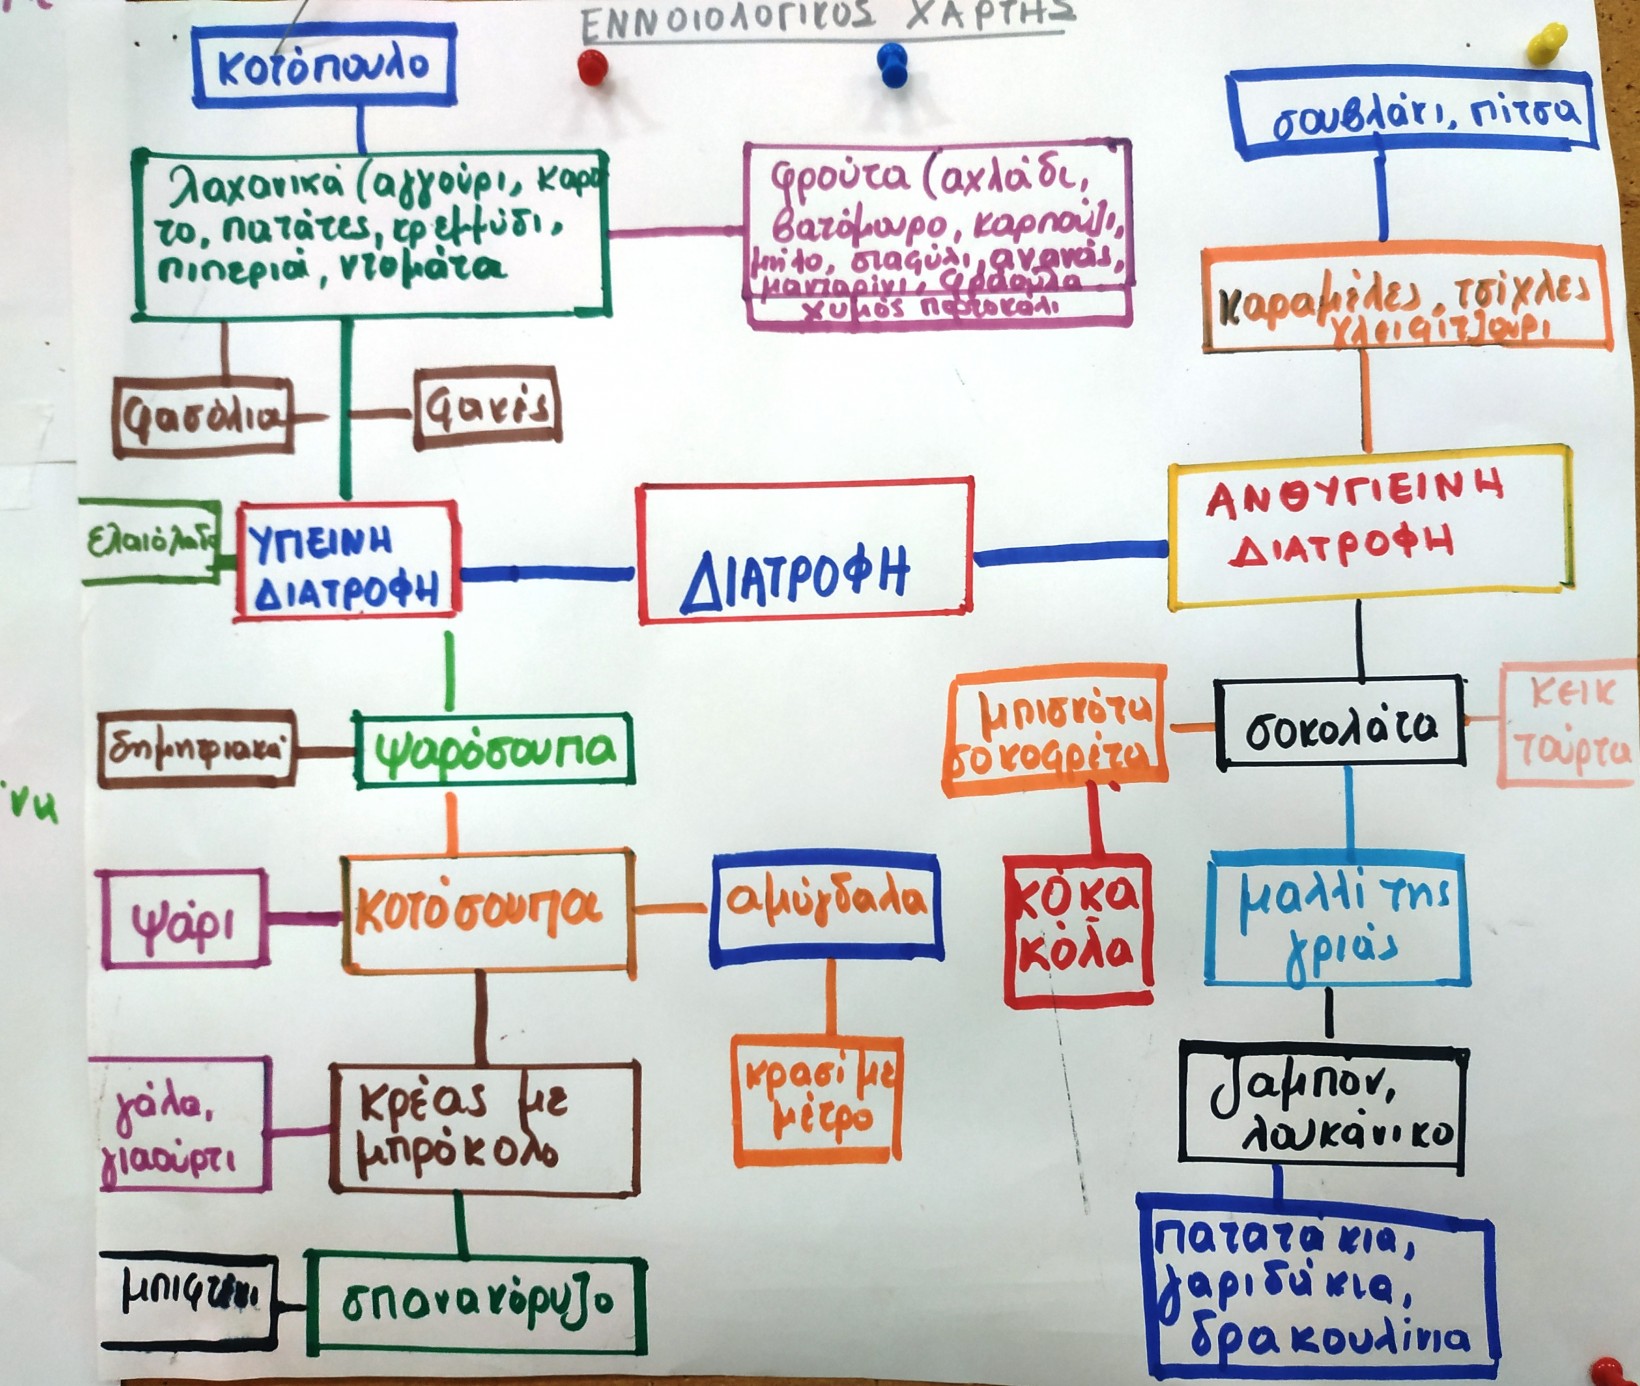 ΕΝΝΟΙΟΛΟΓΙΚΟΣ ΧΑΡΤΗΣ
κοτόπουλο
λαχανικά (αγγούρι, καρο
το, πατάτες, κρεμμύδι,
πιπεριά, ντομάτα
φρούτα (αχλάδι,
βατόμουρο, καρπούζι,
μήλο, σταφύλι, ανανάς,
μανταρίνι, φράουλα
χυμός πορτοκάλι
σουβλάκι, πίτσα
καραμέλες, τσίχλες
γλειφιτζούρι
φασόλια
φακές
ελαιόλαδο
ΥΓΙΕΙΝΗ
ΔΙΑΤΡΟΦΗ
ΔΙΑΤΡΟΦΗ
ΑΝΘΥΓΙΕΙΝΗ
ΔΙΑΤΡΟΦΗ
δημητριακά
ψαρόσουπα
μπισκότα
σοκοφρέτα
σοκολάτα
κεικ
τούρτα
ψάρι
κοτόσουπα
αμύγδαλα
κόκα
κόλα
μαλλί της
γριάς
γάλα,
γιαούρτι
κρέας με
μπρόκολο
κρασί με
μέτρο
ζαμπόν,
λουκάνικο
μπιφτέκι
σπανακόρυζο
πατατάκια,
γαριδάκια,
δρακουλίνια